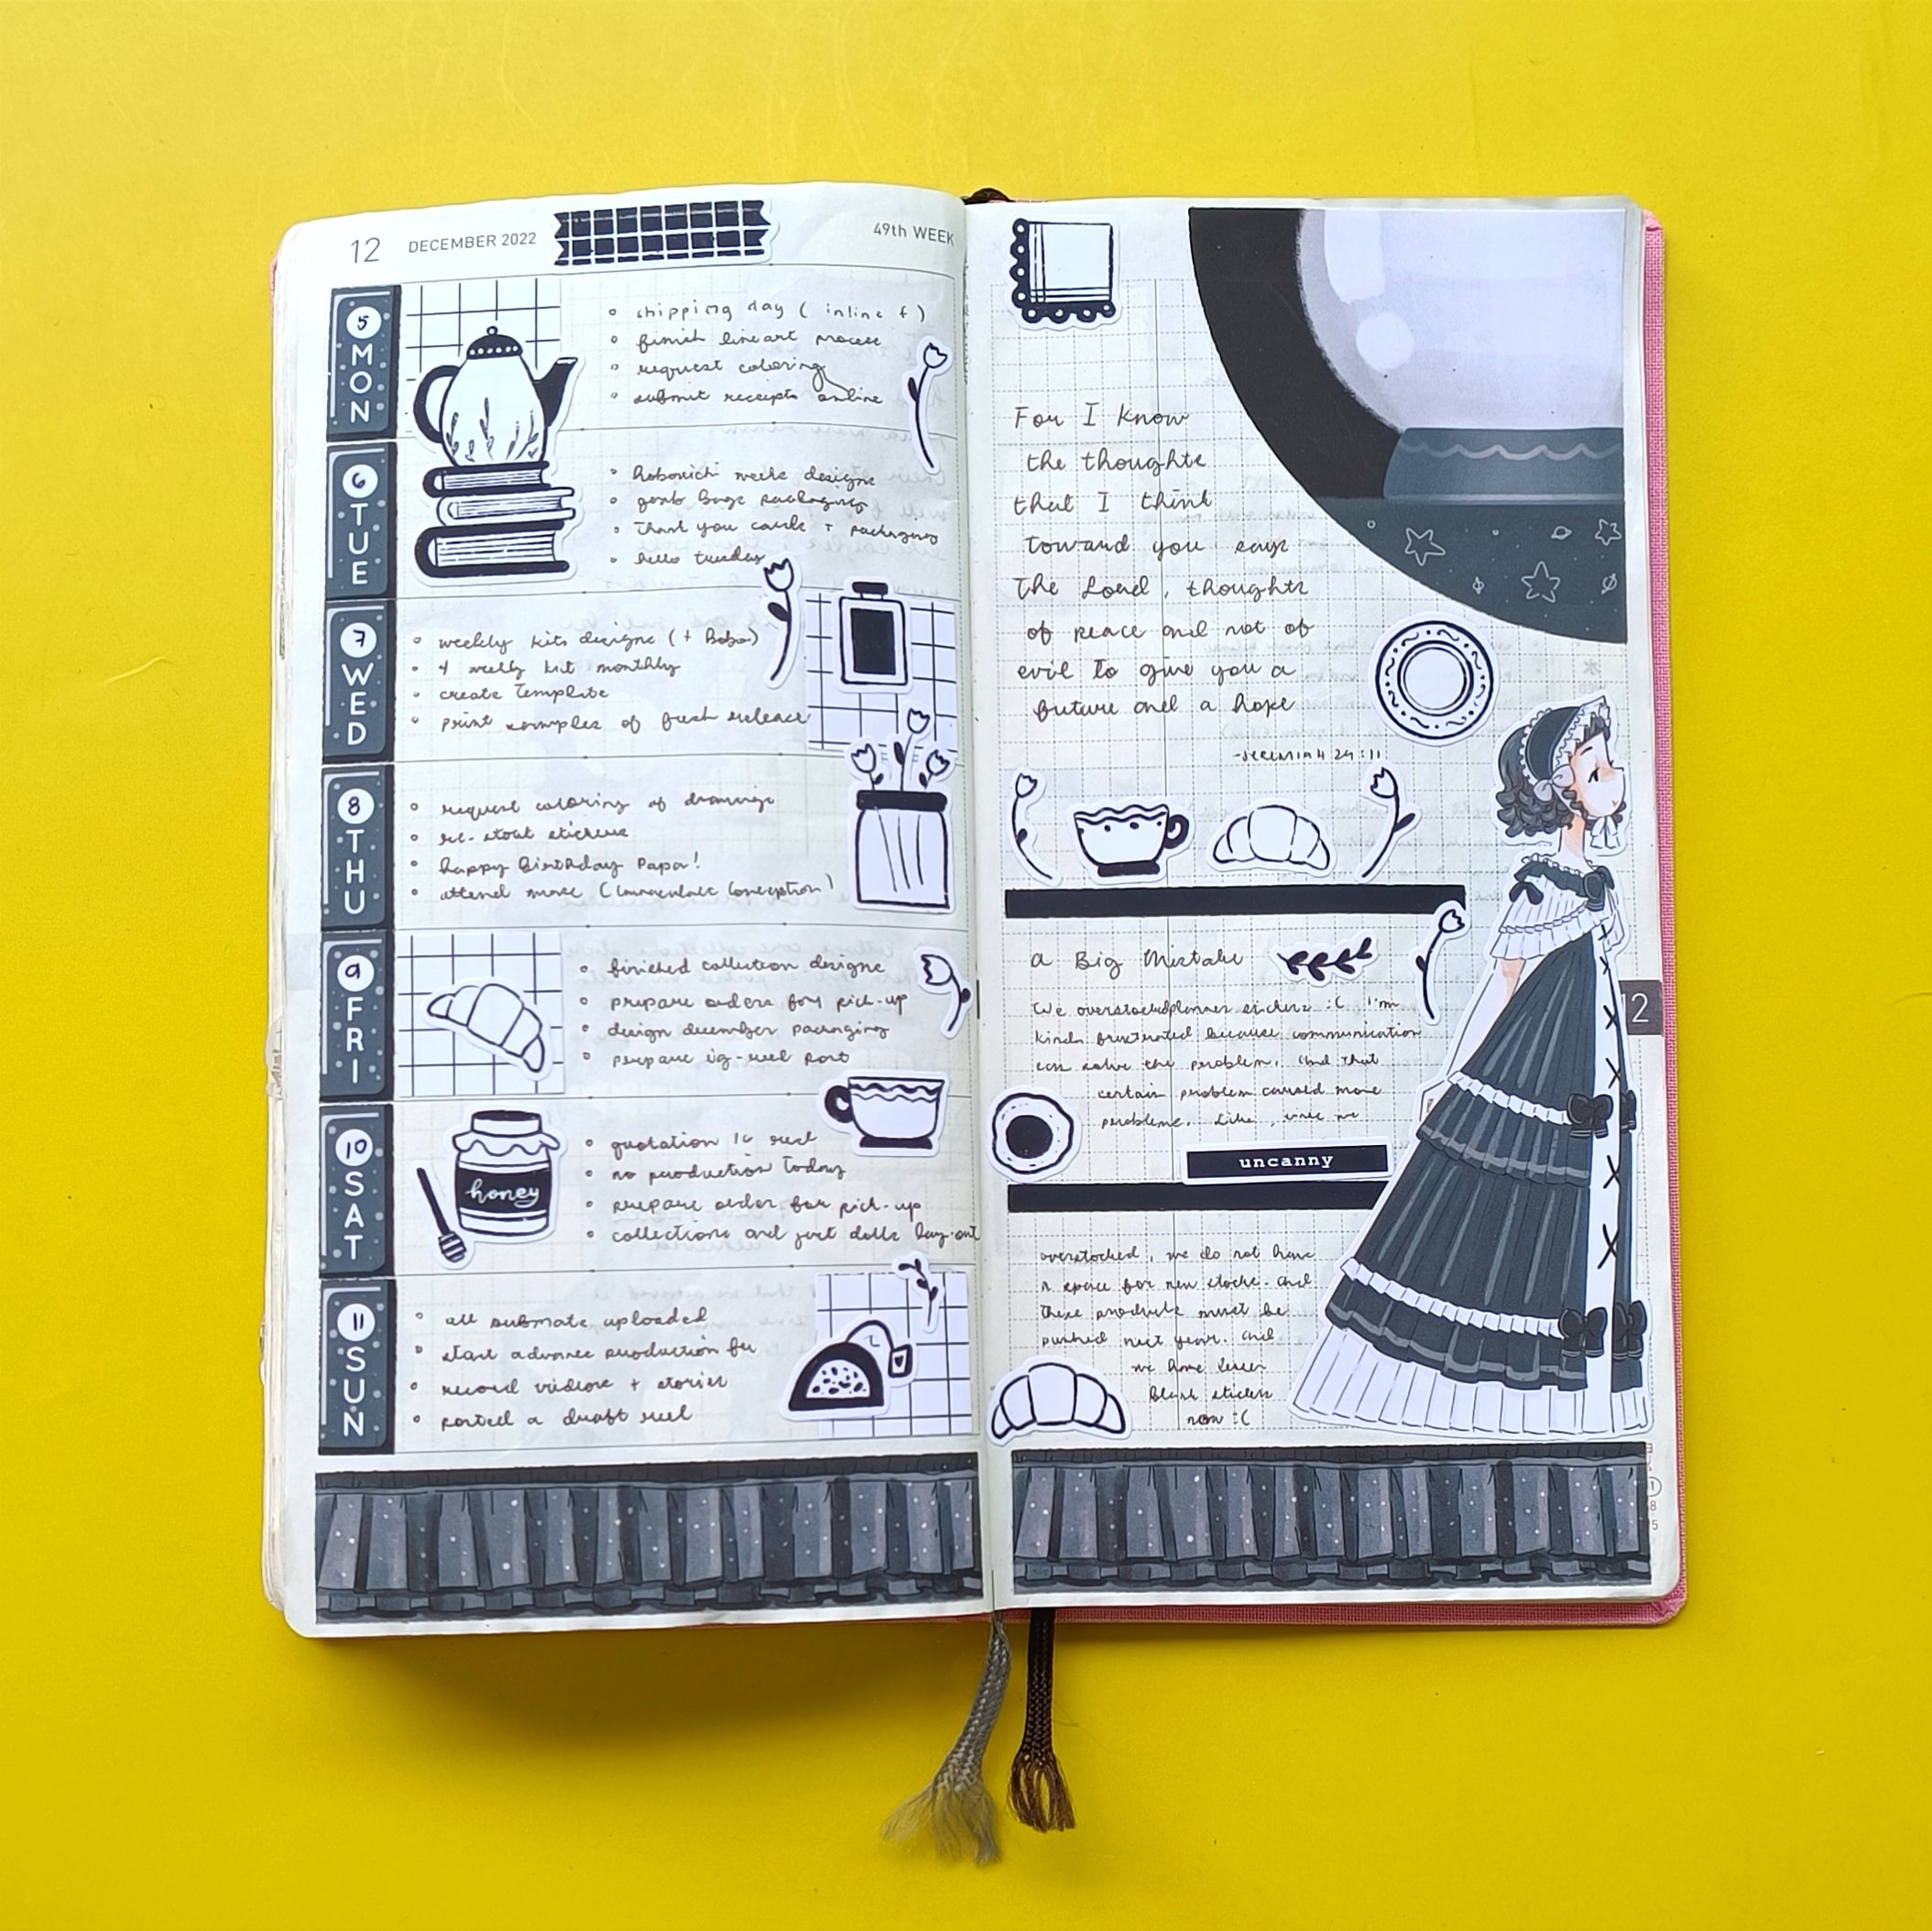 12 DECEMBER 2022
49th WEEK
5 MON
shipping day ( inline f )
finish lineart process
request coloring
submit receipts online
6 TUE
hobonichi weeks designs
grab bags packaging
thank you cards + packaging
hello tuesday
7 WED
weekly kits designs (+ Bobo)
4 weekly kit monthly
create template
print samples of fresh release
8 THU
request coloring of drawings
re-stock stickers
happy Birthday Papa!
attend mass (Immaculate Conception)
9 FRI
finished collection designs
prepare orders for pick-up
design december packaging
prepare ig-reel post
10 SAT
honey
quotation ig reel
no production today
prepare order for pick-up
collections and just dolls lay-out
11 SUN
all submate uploaded
start advance production
record videos + stories
posted a draft reel
For I know
the thoughts
that I think
toward you says
the Lord, thoughts
of peace and not of
evil to give you a
future and a hope
-Jeremiah 29:11
a Big Mistake
We overstocked planner stickers :( I'm
kinda frustrated because communication
can solve the problem. And that
certain problem caused more
problems. Like, since we
uncanny
overstocked, we do not have
a space for new stocks. and
these products must be
pushed next year. and
we have lesser
blank stickers
now :(
12